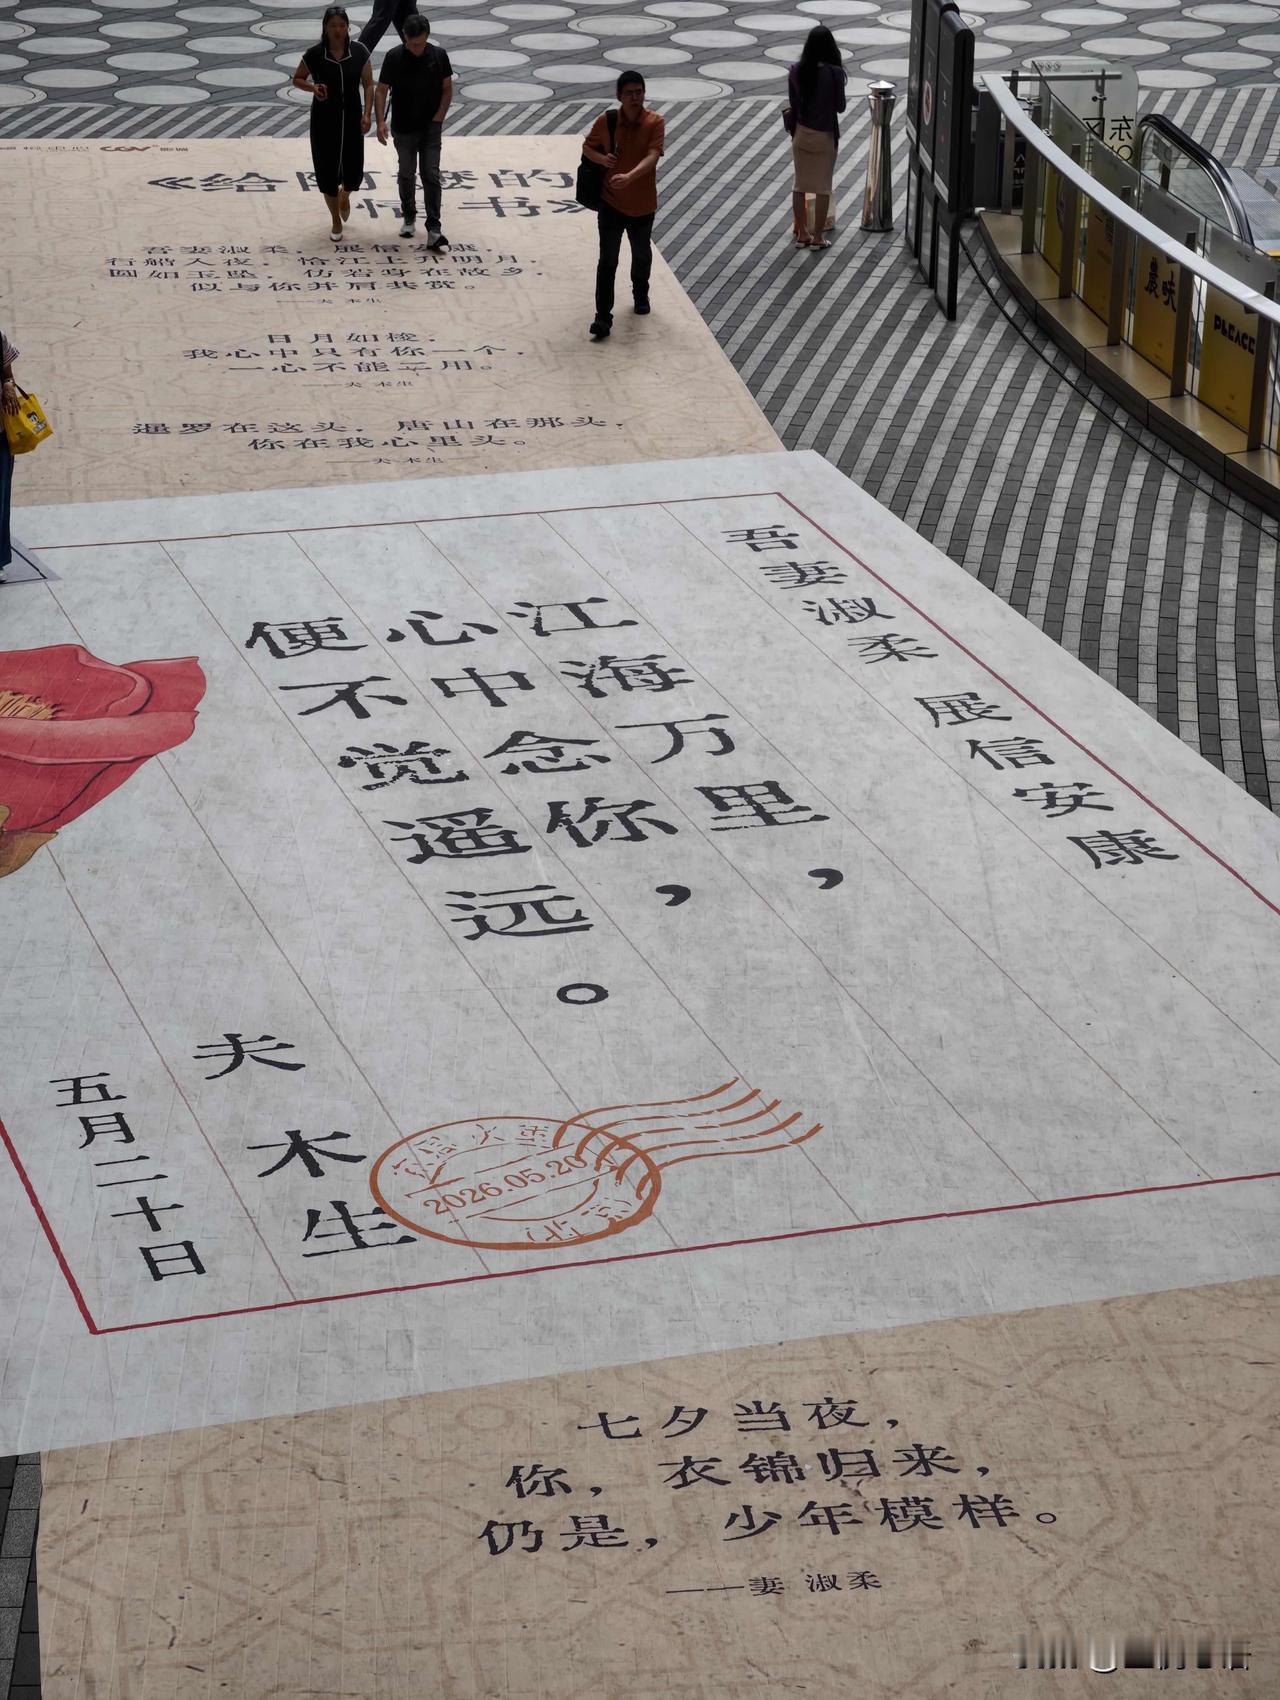 CGV影城
《给阿嬷的
情书》
吾妻淑柔，展信安康，
行船入夜，恰江上升明月，
圆如玉坠，仿若身在故乡，
似与你并肩共赏。
——夫 木生
日月如梭，
我心中只有你一个，
一心不能二用。
——夫 木生
暹罗在这头，唐山在那头，
你在我心里头。
——夫 木生
吾妻淑柔 展信安康
江海万里，
心中念你，
便不觉遥远。
夫木生
五月二十日
2026.05.20
七夕当夜，
你，衣锦归来，
仍是，少年模样。
——妻 淑柔
东区